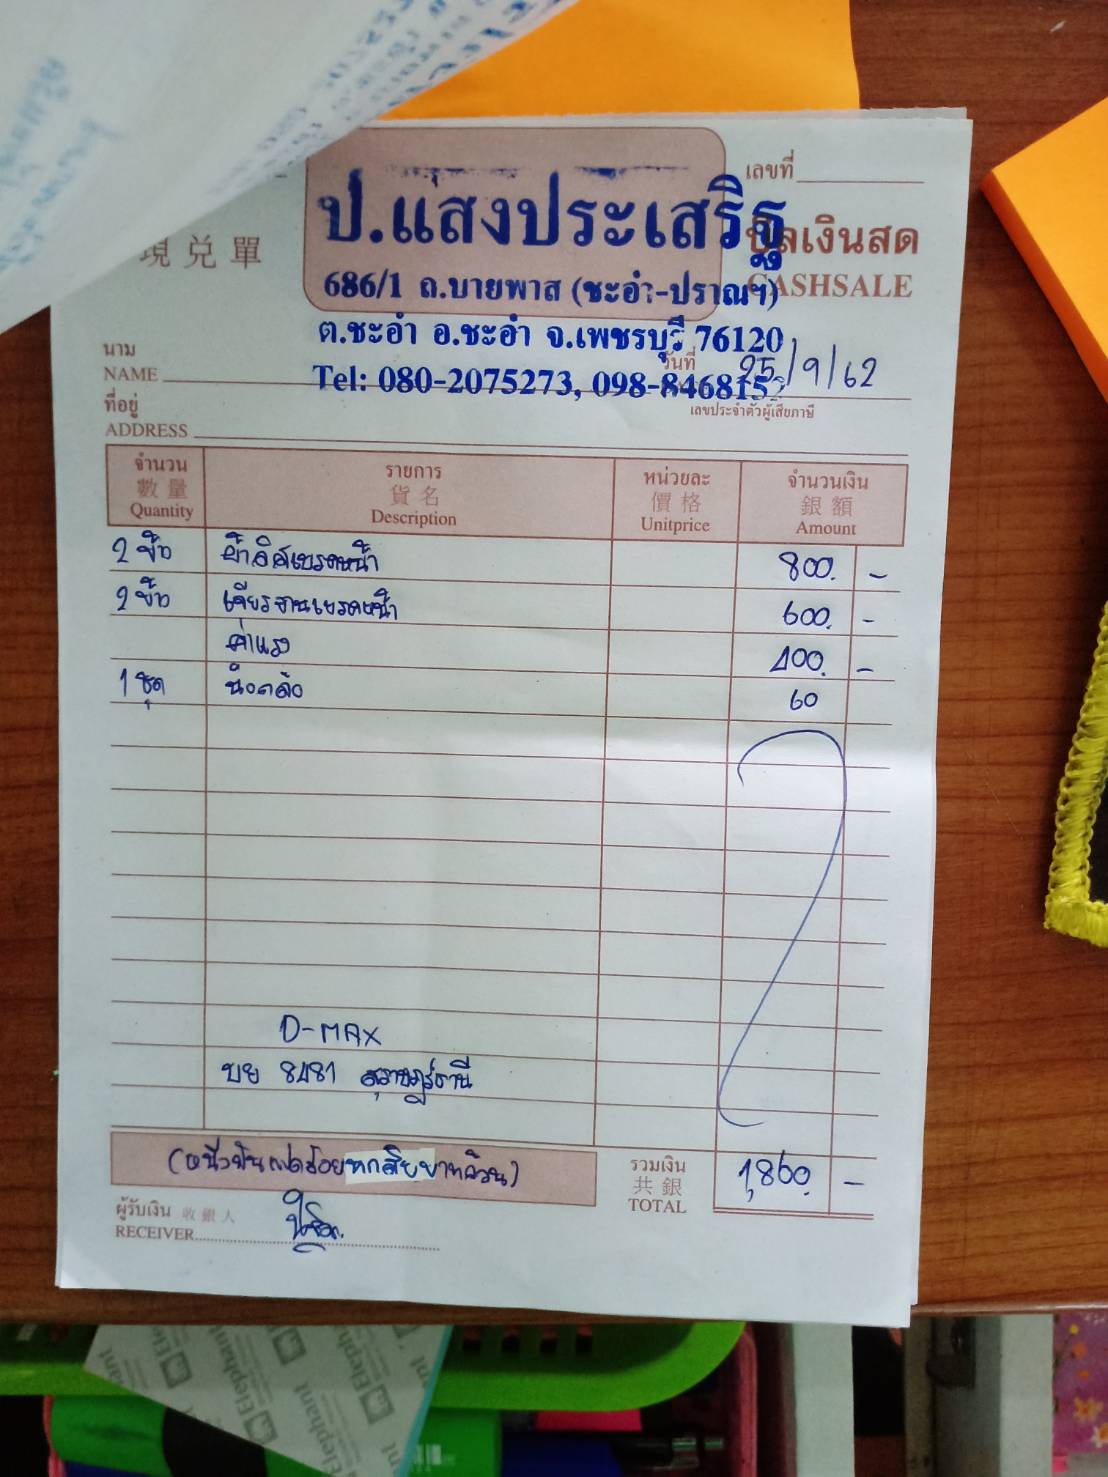 ป.แสงประเสริฐ
เลขที่
現兑單
บิลเงินสด
CASHSALE
686/1 ถ.บายพาส (ชะอำ-ปราณฯ)
ต.ชะอำ อ.ชะอำ จ.เพชรบุรี 76120
Tel: 080-2075273, 098-846815
นาม
NAME
วันที่ 25/9/62
ที่อยู่
ADDRESS
เลขประจำตัวผู้เสียภาษี
จำนวน รายการ หน่วยละ จำนวนเงิน
數量 貨名 價格 銀額
Quantity Description Unitprice Amount
2 ข้าง ผ้าดิสเบรคหน้า 800. -
2 ข้าง เจียรจานเบรคหน้า 600. -
ค่าแรง 400. -
1 ชุด น๊อตล้อ 60
D-MAX
บย 8481 สุราษฎร์ธานี
(หนึ่งพันแปดร้อยหกสิบบาทถ้วน)
รวมเงิน
共銀
TOTAL
1,860. -
ผู้รับเงิน 收銀人
RECEIVER
Elephant
Elephant
Elephant